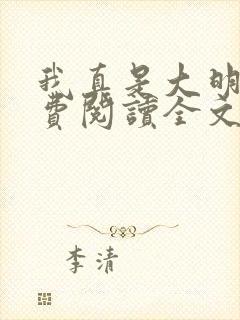 我真是大明
費閱讀全文
李清